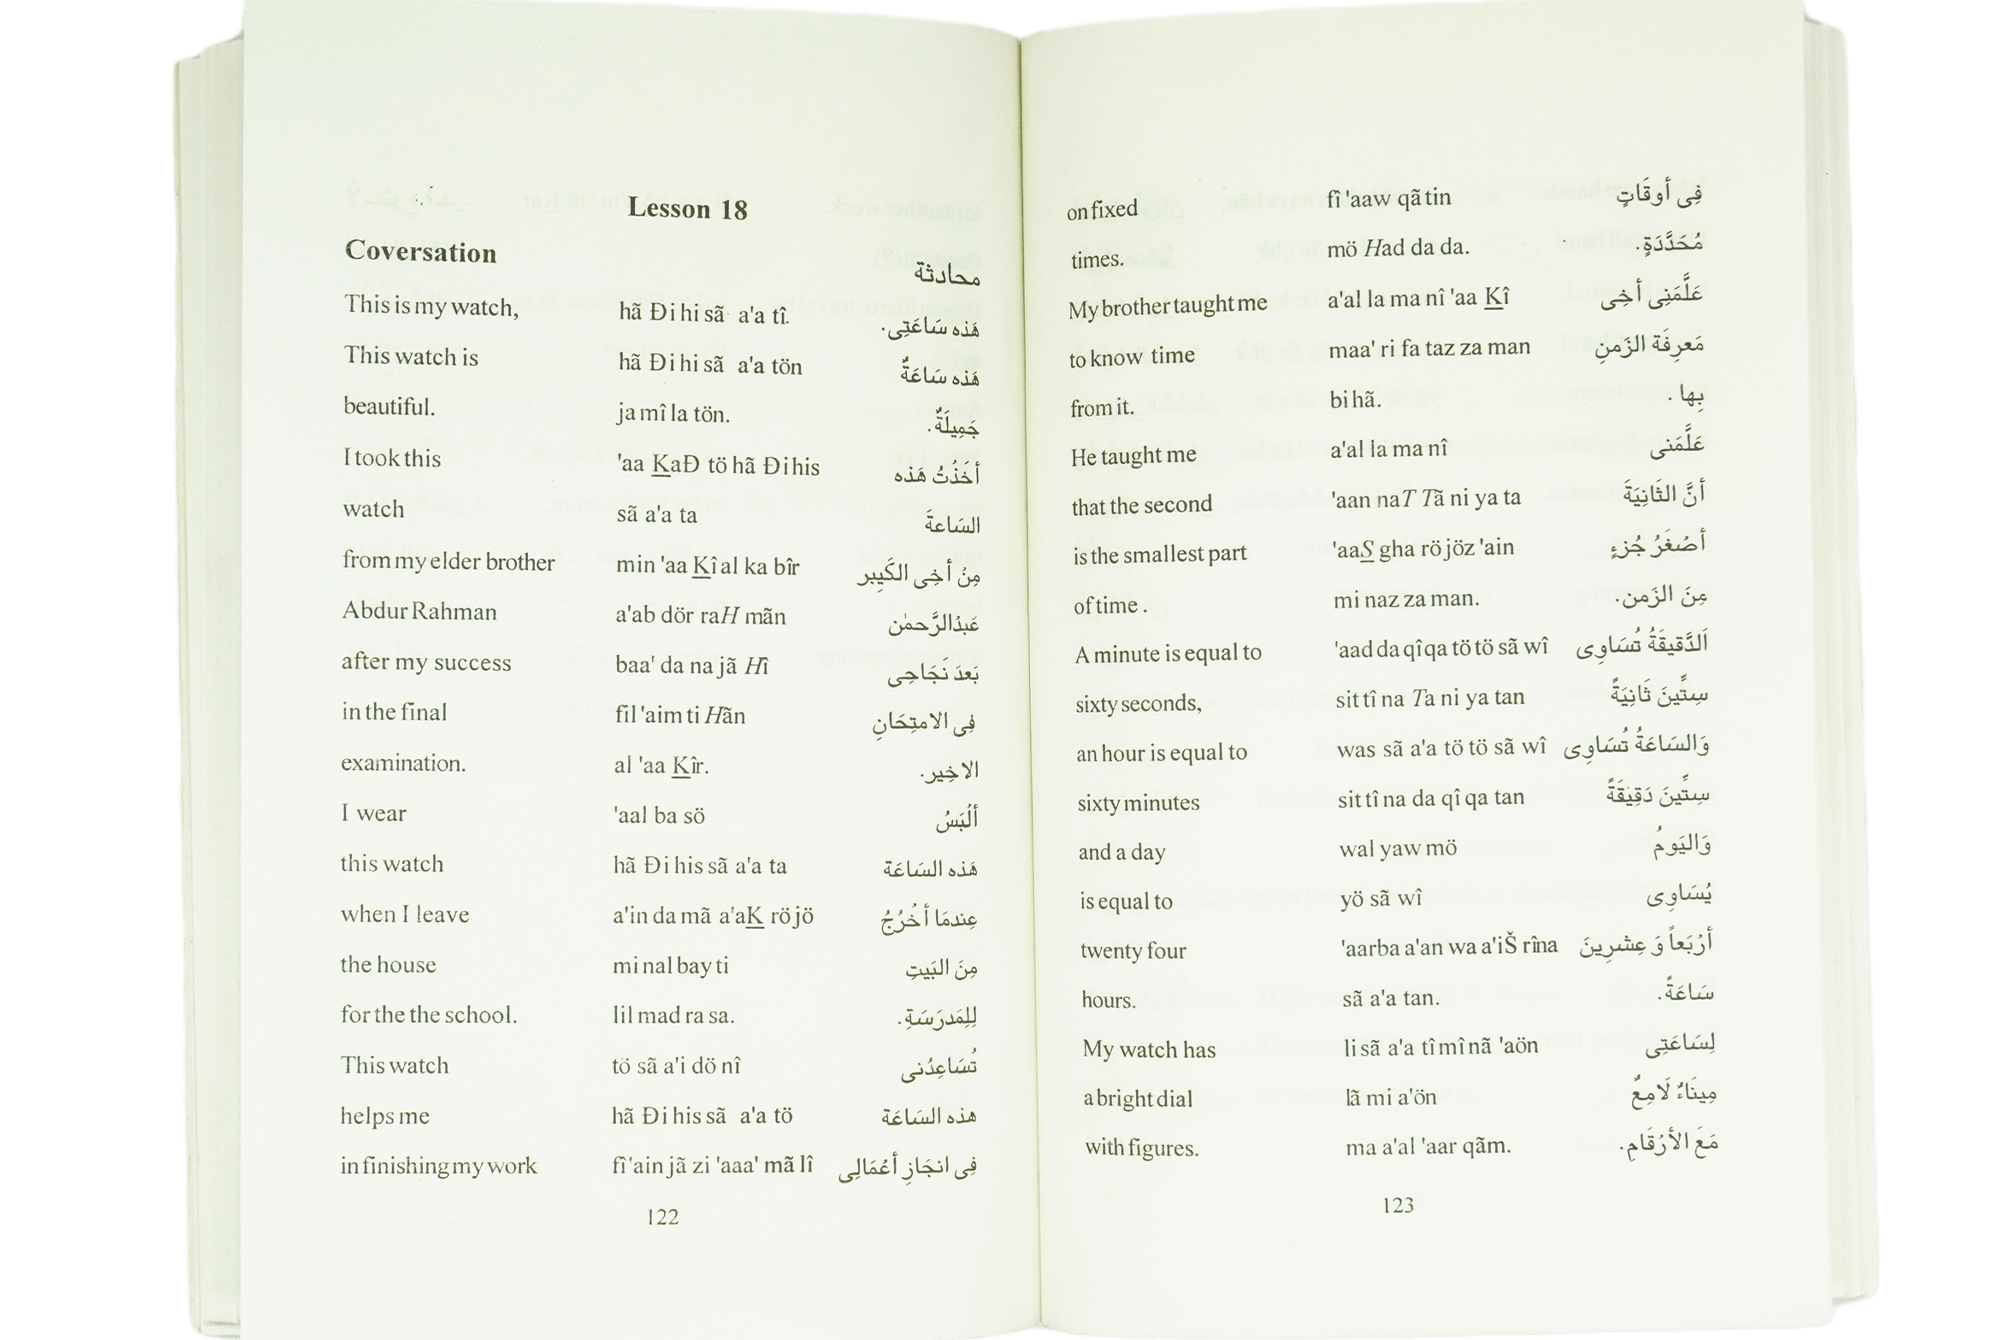 Lesson 18
Coversation محادثة
This is my watch, hã Ði hi sã a'a tî. هَذه سَاعَتِى.
This watch is hã Ði hi sã a'a tön هَذه سَاعَةٌ
beautiful. ja mî la tön. جَمِيلَةٌ.
I took this 'aa KaÐ tö hã Ði his أخَذْتُ هَذه
watch sã a'a ta السَاعةَ
from my elder brother min 'aa Kî al ka bîr مِنْ أخِى الكَبِير
Abdur Rahman a'ab dör raH mãn عَبدُالرَّحمٰن
after my success baa' da na jã Hî بَعدَ نَجَاحِى
in the final fil 'aim ti Hãn فِى الامتِحَانِ
examination. al 'aa Kîr. الاخِير.
I wear 'aal ba sö ألْبَسُ
this watch hã Ði his sã a'a ta هَذه السَاعَة
when I leave a'in da mã a'aK rö jö عِندمَا أخْرُجُ
the house mi nal bay ti مِنَ البَيتِ
for the the school. lil mad ra sa. لِلِمَدرَسَةِ.
This watch tö sã a'i dö nî تُسَاعِدُنى
helps me hã Ði his sã a'a tö هذه السَاعَة
in finishing my work fî 'ain jã zi 'aaa' mã lî فِى انجَازِ أعْمَالِى
122
on fixed fî 'aaw qã tin فِى أوقَاتٍ
times. mö Had da da. مُحَدَّدَةٍ.
My brother taught me a'al la ma nî 'aa Kî عَلَّمَنِى أخِى
to know time maa' ri fa taz za man مَعرِفَة الزَمنِ
from it. bi hã. بِها .
He taught me a'al la ma nî عَلَّمَنى
that the second 'aan naT Tã ni ya ta أنَّ الثَانِيَةَ
is the smallest part 'aaS gha rö jöz 'ain أصْغَرُ جُزءٍ
of time . mi naz za man. مِنَ الزَمن.
A minute is equal to 'aad da qî qa tö tö sã wî اَلدَّقيقَةُ تُسَاوِى
sixty seconds, sit tî na Ta ni ya tan سِتِّينَ ثَانِيَةً
an hour is equal to was sã a'a tö tö sã wî وَالسَاعَةُ تُسَاوِى
sixty minutes sit tî na da qî qa tan سِتِّينَ دَقِيْقَةً
and a day wal yaw mö وَاليَومُ
is equal to yö sã wî يُسَاوِى
twenty four 'aarba a'an wa a'iŠ rîna أرْبَعاً وَ عِشرِينَ
hours. sã a'a tan. سَاعَةً.
My watch has li sã a'a tî mî nã 'aön لِسَاعَتِى
a bright dial lã mi a'ön مِينَاءٌ لَامِعٌ
with figures. ma a'al 'aar qãm. مَعَ الأرْقَامِ.
123